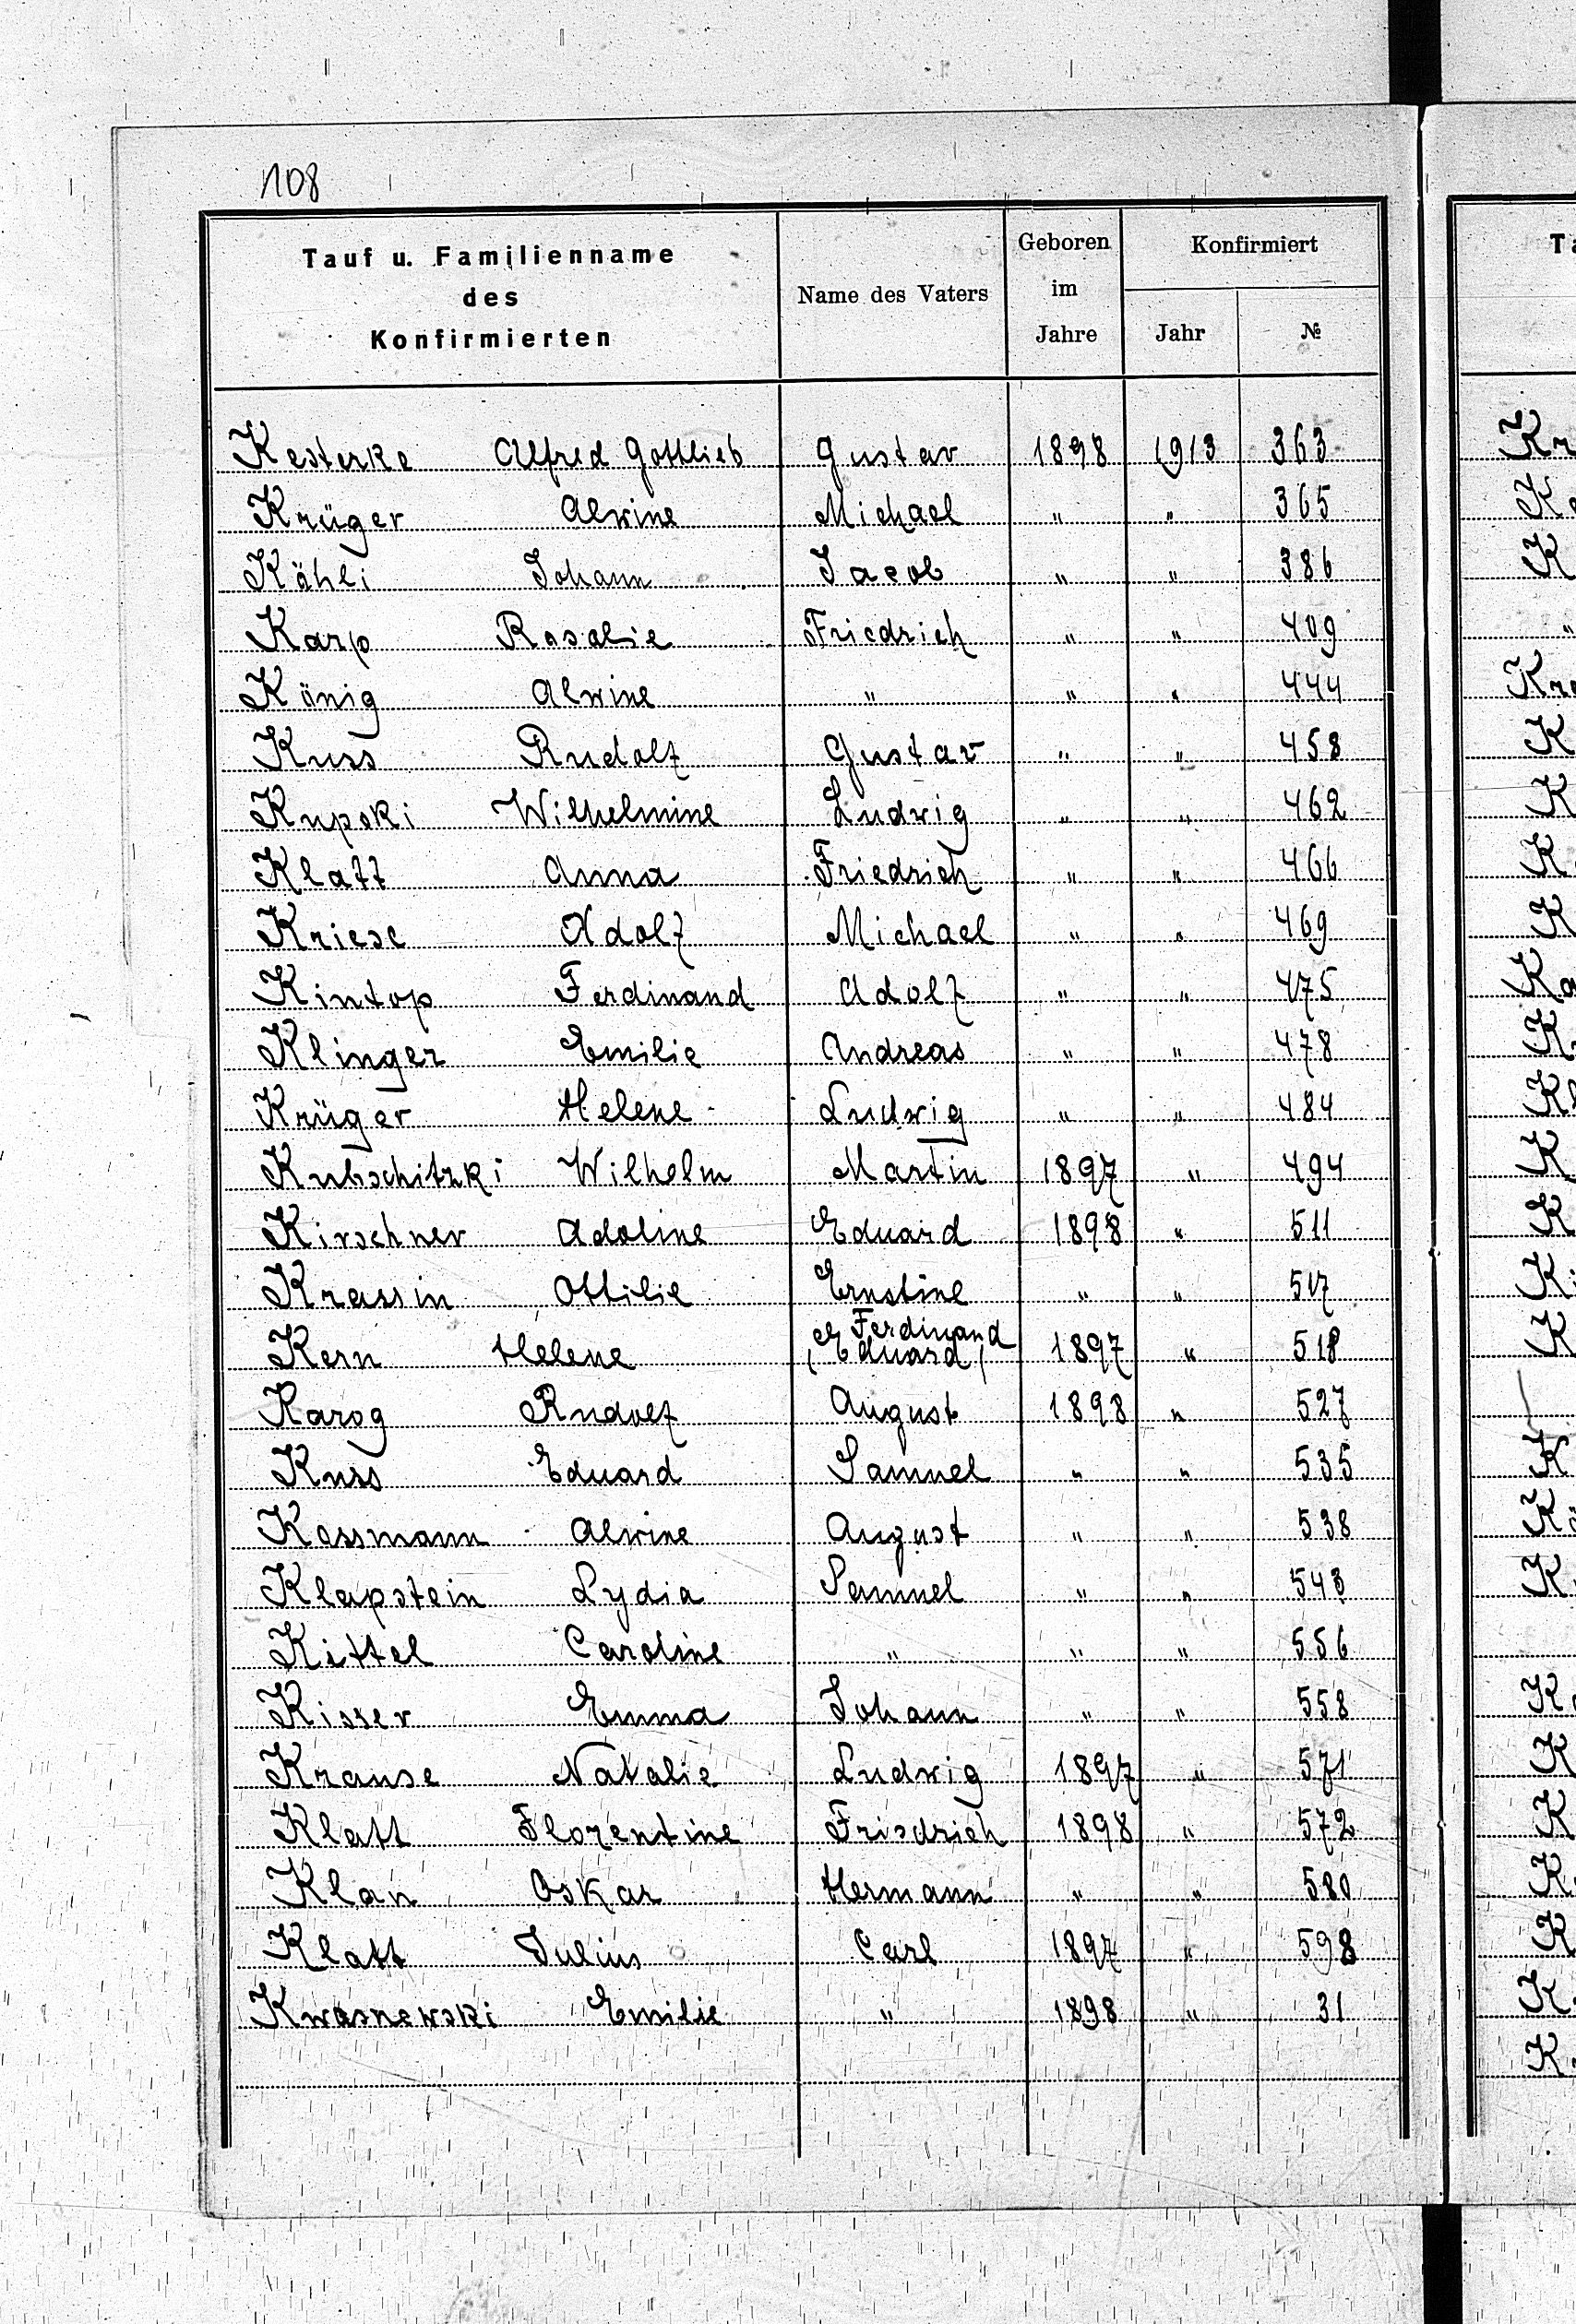 108
Tauf u. Familienname des Konfirmierten | Name des Vaters | Geboren im Jahre | Konfirmiert Jahr | №
Kesterke Alfred Gottlieb Gustav 1898 1913 363
Krüger Alwine Michael " " 365
Kähli Johann Jacob " " 386
Karp Rosalie Friedrich " " 409
König Alwine " " " 444
Kuss Rudolf Gustav " " 458
Kupski Wilhelmine Ludwig " " 462
Klatt Anna Friedrich " " 466
Kriese Adolf Michael " " 469
Kintop Ferdinand Adolf " " 475
Klinger Emilie Andreas " " 478
Krüger Helene Ludwig " " 484
Kubschitzki Wilhelm Martin 1897 " 494
Kirschner Adoline Eduard 1898 " 511
Krassin Ottilie Ernstine " " 517
Kern Helene Ferdinand (Eduard) 1897 " 518
Karog Rudolf August 1898 " 527
Kuss Eduard Samuel " " 535
Kossmann Alwine August " " 538
Klapstein Lydia Samuel " " 543
Kittel Caroline " " " 556
Kisser Emma Johann " " 558
Krause Natalie Ludwig 1897 " 571
Klatt Florentine Friedrich 1898 " 572
Klan Oskar Hermann " " 580
Klatt Julius Carl 1897 " 598
Kwasnewski Emilie " 1898 " 31